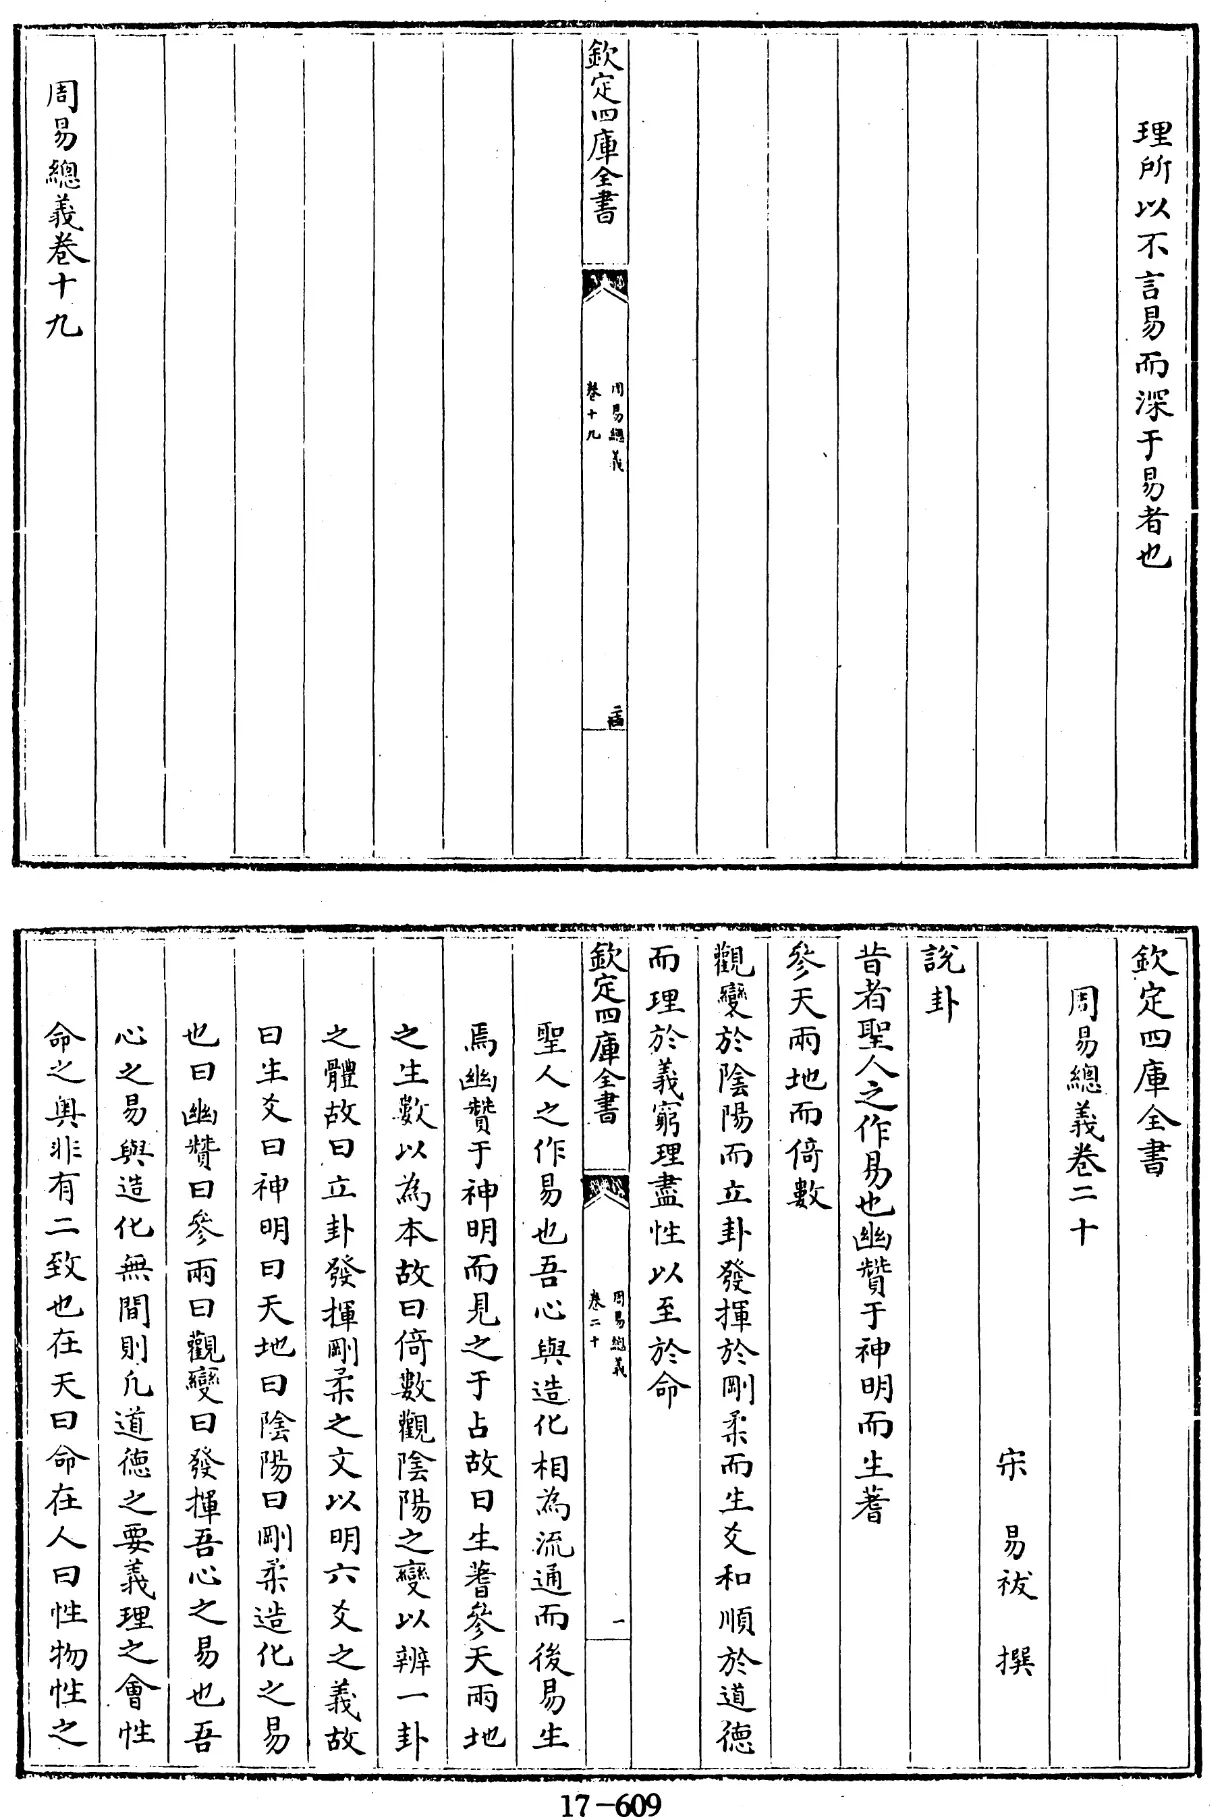 理所以不言易而深于易者也
欽定四庫全書
周易總義
卷十九
周易總義卷十九
欽定四庫全書
周易總義卷二十
宋 易祓 撰
說卦
昔者聖人之作易也幽贊于神明而生蓍
參天兩地而倚數
觀變於陰陽而立卦發揮於剛柔而生爻和順於道德
而理於義窮理盡性以至於命
欽定四庫全書
周易總義
卷二十
一
聖人之作易也吾心與造化相為流通而後易生
焉幽贊于神明而見之于占故曰生蓍參天兩地
之生數以為本故曰倚數觀陰陽之變以辨一卦
之體故曰立卦發揮剛柔之文以明六爻之義故
曰生爻曰神明曰天地曰陰陽曰剛柔造化之易
也曰幽贊曰參兩曰觀變曰發揮吾心之易也吾
心之易與造化無間則凡道德之要義理之會性
命之奧非有二致也在天曰命在人曰性物性之
17-609